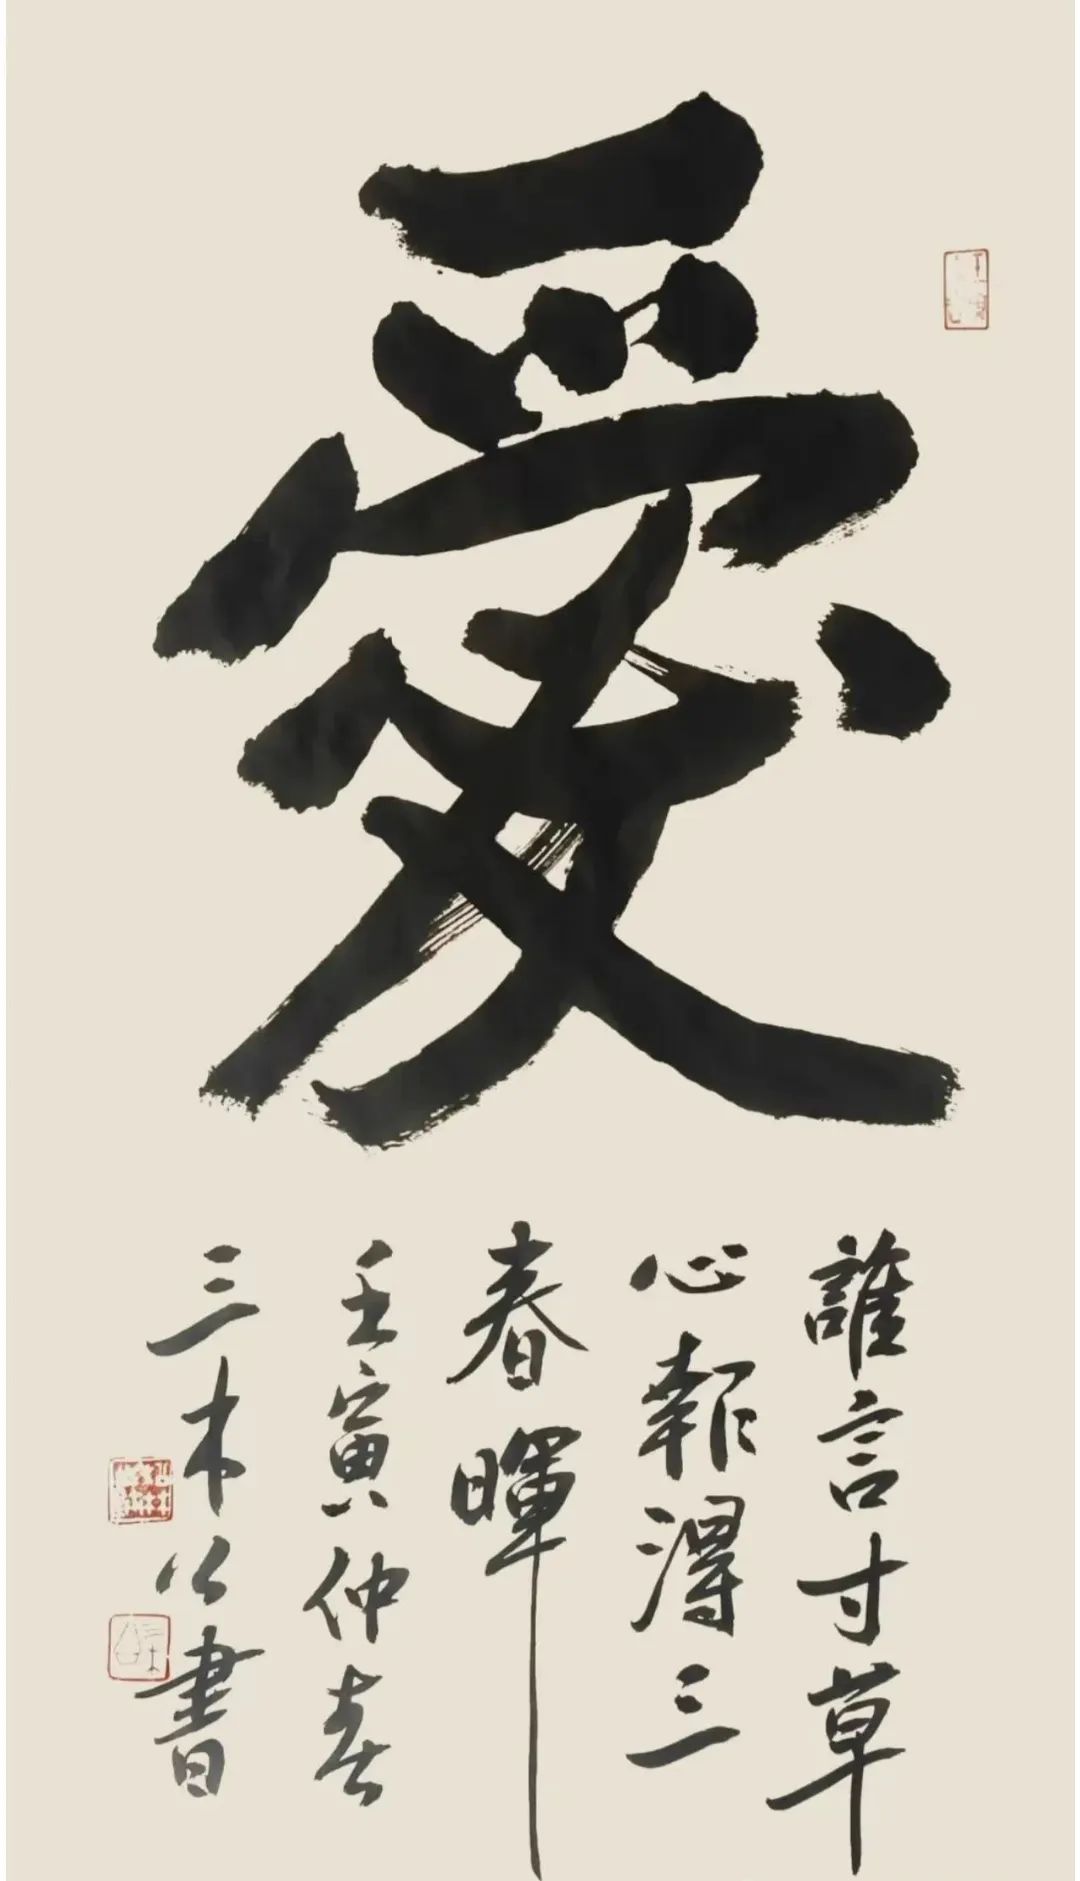 愛
誰言寸草
心報得三
春暉
壬寅仲春
三木公書